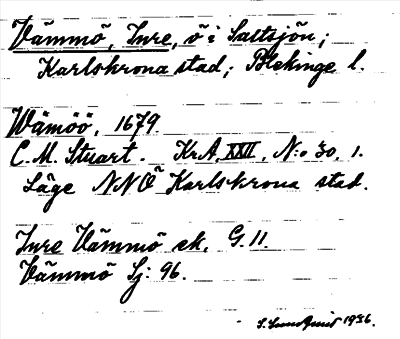 Vämmö, Inre, ö i Saltsjön;
Karlskrona stad; Blekinge l.
Wämöö, 1679.
C. M. Stuart. KrA, XXII, N:o 30, 1.
Läge NNÖ Karlskrona stad.
Inre Vämmö ek. G. 11.
Vämmö Sj: 96.
S. Lundquist 1936.